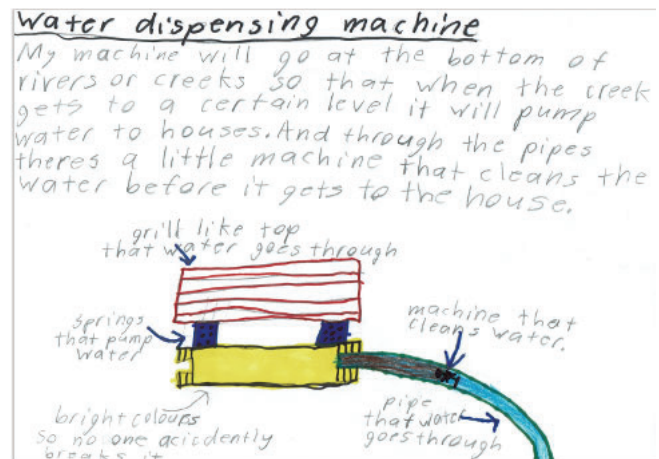 Water dispensing machine
My machine will go at the bottom of
rivers or creeks so that when the creek
gets to a certain level it will pump
water to houses. And through the pipes
theres a little machine that cleans the
water before it gets to the house.
grill like top
that water goes through
springs
that pump
water
machine that
cleans water.
bright colours
so no one acicdently
breaks it
pipe
that water
goes through